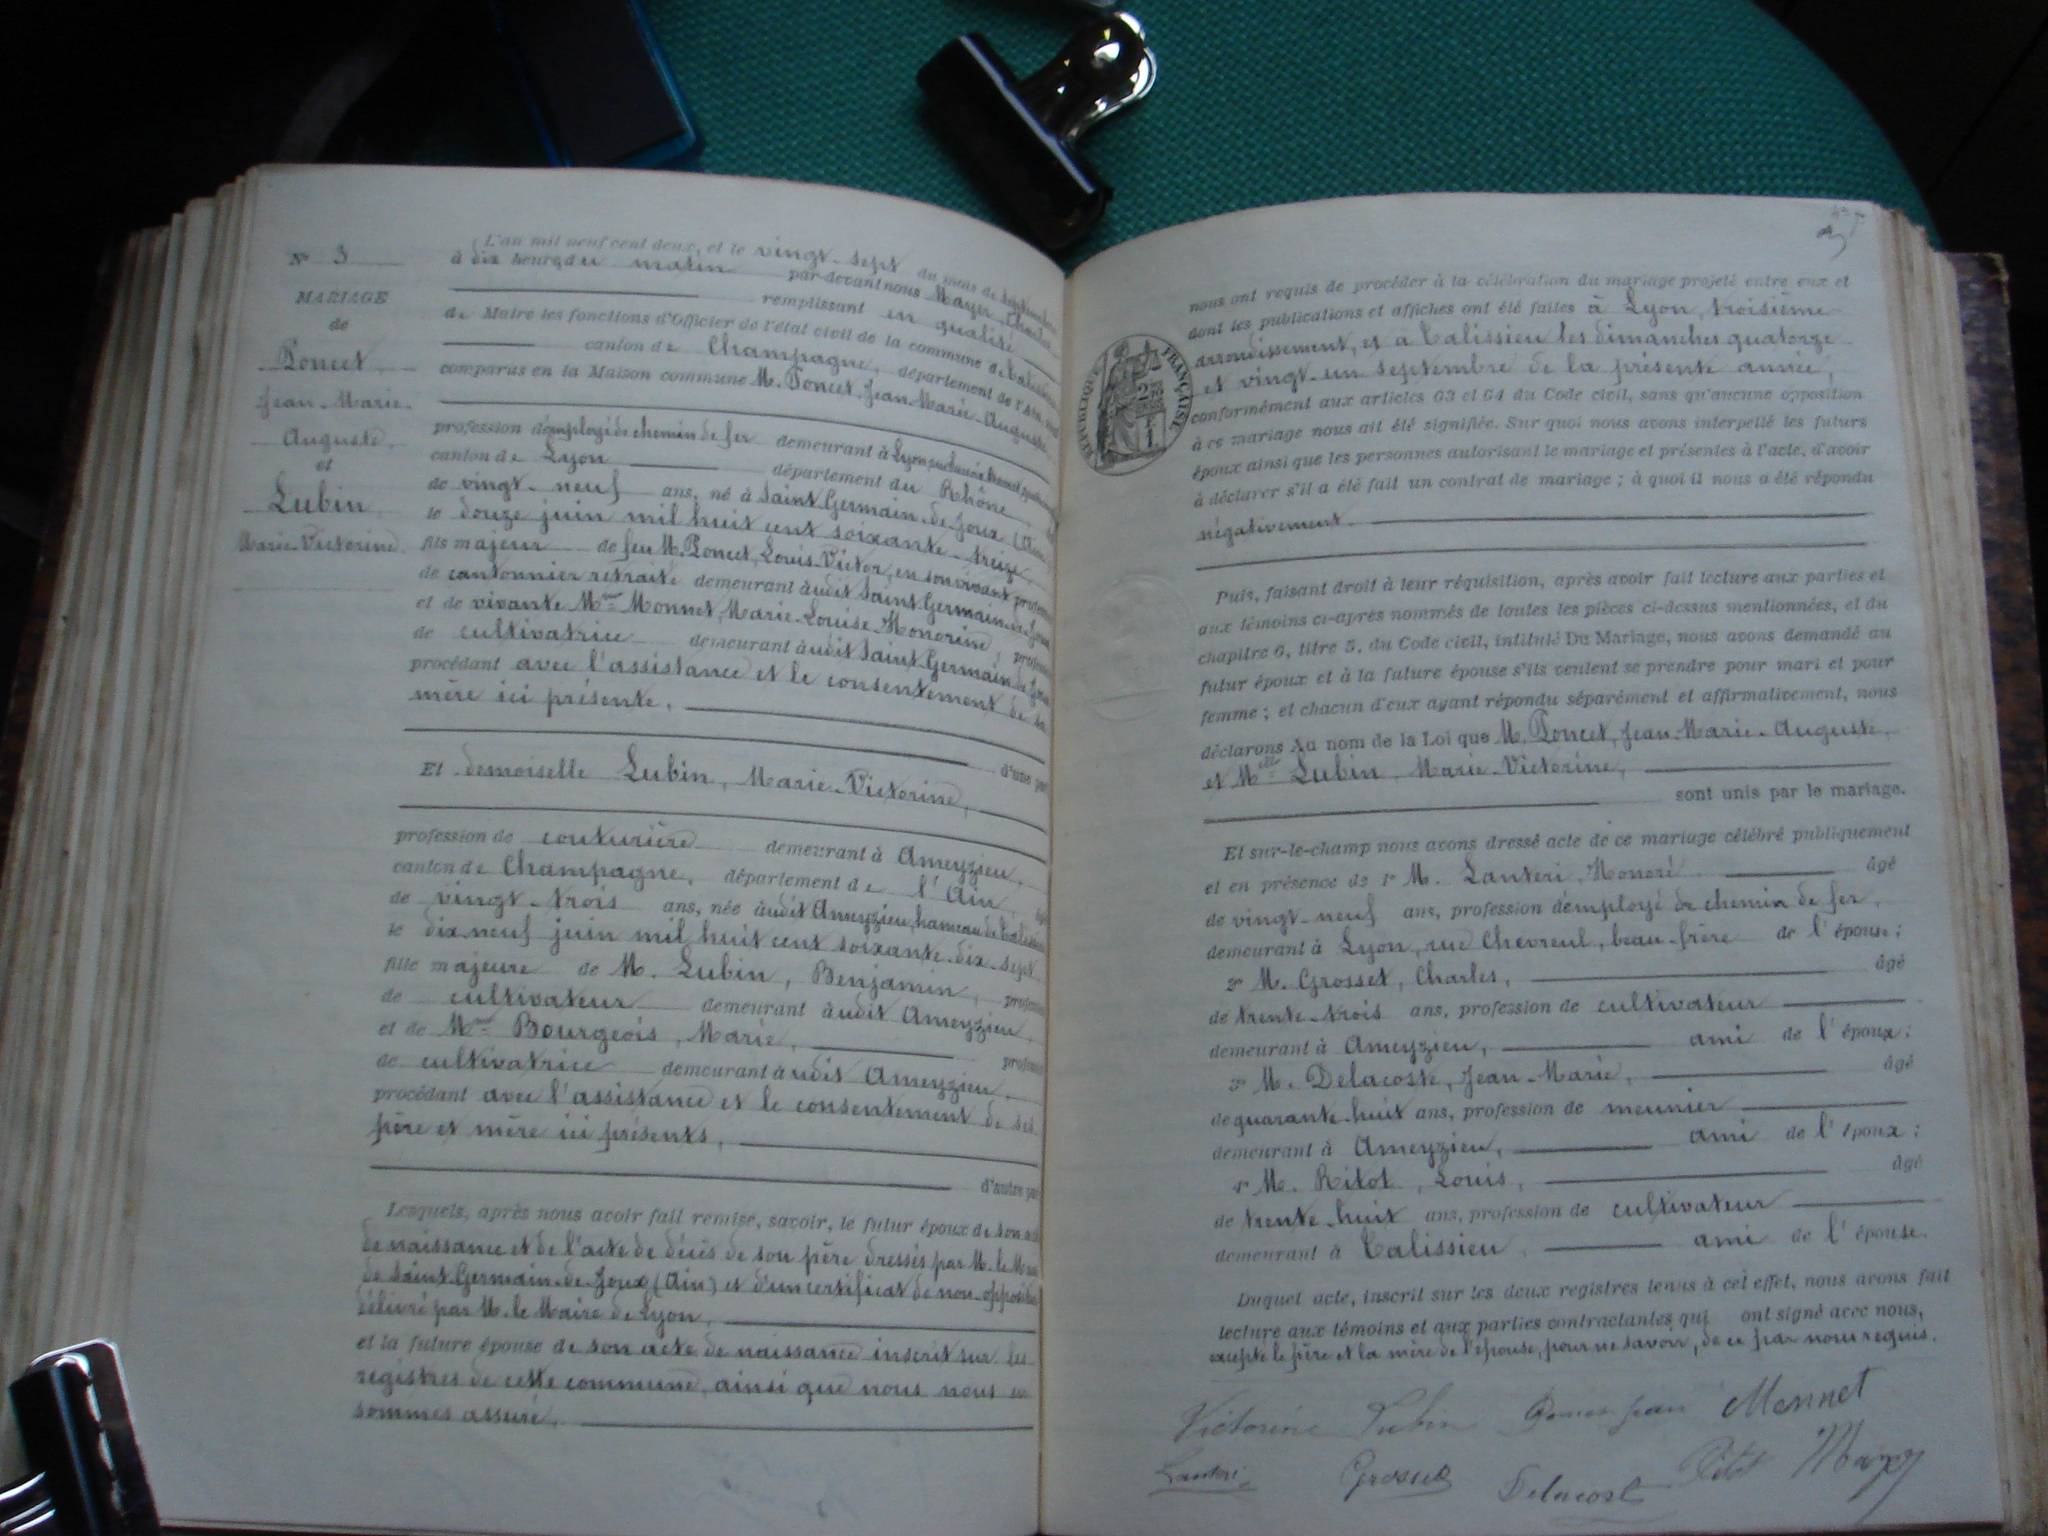 N° 3
MARIAGE
de
Poncet,
Jean-Marie-
Auguste,
et
Lubin,
Marie-Victorine.
L'an mil neuf cent deux, et le vingt-sept du mois de septembre
à dix heures du matin par-devant nous Mayer, Charles
remplissant en qualité
de Maire les fonctions d'Officier de l'état civil de la commune de Talissieu
canton de Champagne, département de l'Ain,
comparus en la Maison commune M. Poncet, Jean-Marie-Auguste,
profession d'employé de chemin de fer demeurant à Lyon,
canton de Lyon département du Rhône,
de vingt-neuf ans, né à Saint-Germain-de-Joux (Ain)
le douze juin mil huit cent soixante-treize,
fils majeur de feu M. Poncet, Louis-Victor, en son vivant profession
de cantonnier retraité demeurant audit Saint-Germain-de-Joux
et de vivante Mme Monnet, Marie-Louise-Honorine, profession
de cultivatrice demeurant audit Saint-Germain-de-Joux
procédant avec l'assistance et le consentement de sa
mère ici présente,
d'une part
Et demoiselle Lubin, Marie-Victorine,
profession de couturière demeurant à Ameyzieu,
canton de Champagne, département de l'Ain, âgée
de vingt-trois ans, née audit Ameyzieu, hameau de Talissieu
le dix-neuf juin mil huit cent soixante-dix-sept,
fille majeure de M. Lubin, Benjamin, profession
de cultivateur demeurant audit Ameyzieu,
et de Mme Bourgeois, Marie, profession
de cultivatrice demeurant audit Ameyzieu,
procédant avec l'assistance et le consentement de ses
père et mère ici présents,
d'autre part
Lesquels, après nous avoir fait remise, savoir, le futur époux de son acte
de naissance et de l'acte de décès de son père dressés par M. le Maire
de Saint-Germain-de-Joux (Ain) et d'un certificat de non-opposition
délivré par M. le Maire de Lyon,
et la future épouse de son acte de naissance inscrit sur les
registres de cette commune, ainsi que nous nous en
sommes assuré,
nous ont requis de procéder à la célébration du mariage projeté entre eux et
dont les publications et affiches ont été faites à Lyon, troisième
arrondissement, et à Talissieu les dimanches quatorze
et vingt-un septembre de la présente année,
conformément aux articles 63 et 64 du Code civil, sans qu'aucune opposition
à ce mariage nous ait été signifiée. Sur quoi nous avons interpellé les futurs
époux ainsi que les personnes autorisant le mariage et présentes à l'acte, d'avoir
à déclarer s'il a été fait un contrat de mariage ; à quoi il nous a été répondu
négativement.
RÉPUBLIQUE FRANÇAISE
Puis, faisant droit à leur réquisition, après avoir fait lecture aux parties et
aux témoins ci-après nommés de toutes les pièces ci-dessus mentionnées, et du
chapitre 6, titre 5, du Code civil, intitulé Du Mariage, nous avons demandé au
futur époux et à la future épouse s'ils veulent se prendre pour mari et pour
femme ; et chacun d'eux ayant répondu séparément et affirmativement, nous
déclarons Au nom de la Loi que M. Poncet, Jean-Marie-Auguste,
et Mlle Lubin, Marie-Victorine,
sont unis par le mariage.
Et sur-le-champ nous avons dressé acte de ce mariage célébré publiquement
et en présence de 1° M. Lanteri, Honoré âgé
de vingt-neuf ans, profession d'employé de chemin de fer,
demeurant à Lyon, rue Chevreul, beau-frère de l'épouse ;
2° M. Grosset, Charles, âgé
de trente-trois ans, profession de cultivateur
demeurant à Ameyzieu, ami de l'époux ;
3° M. Delacoste, Jean-Marie, âgé
de quarante-huit ans, profession de meunier
demeurant à Ameyzieu, ami de l'époux ;
4° M. Pitot, Louis, âgé
de trente-huit ans, profession de cultivateur
demeurant à Talissieu, ami de l'épouse.
Duquel acte, inscrit sur les deux registres tenus à cet effet, nous avons fait
lecture aux témoins et aux parties contractantes qui ont signé avec nous,
excepté le père et la mère de l'épouse, pour ne savoir, de ce par nous requis.
Victorine Lubin Poncet Jean Monnet
Lanteri Grosset Delacoste Pitot Mayer